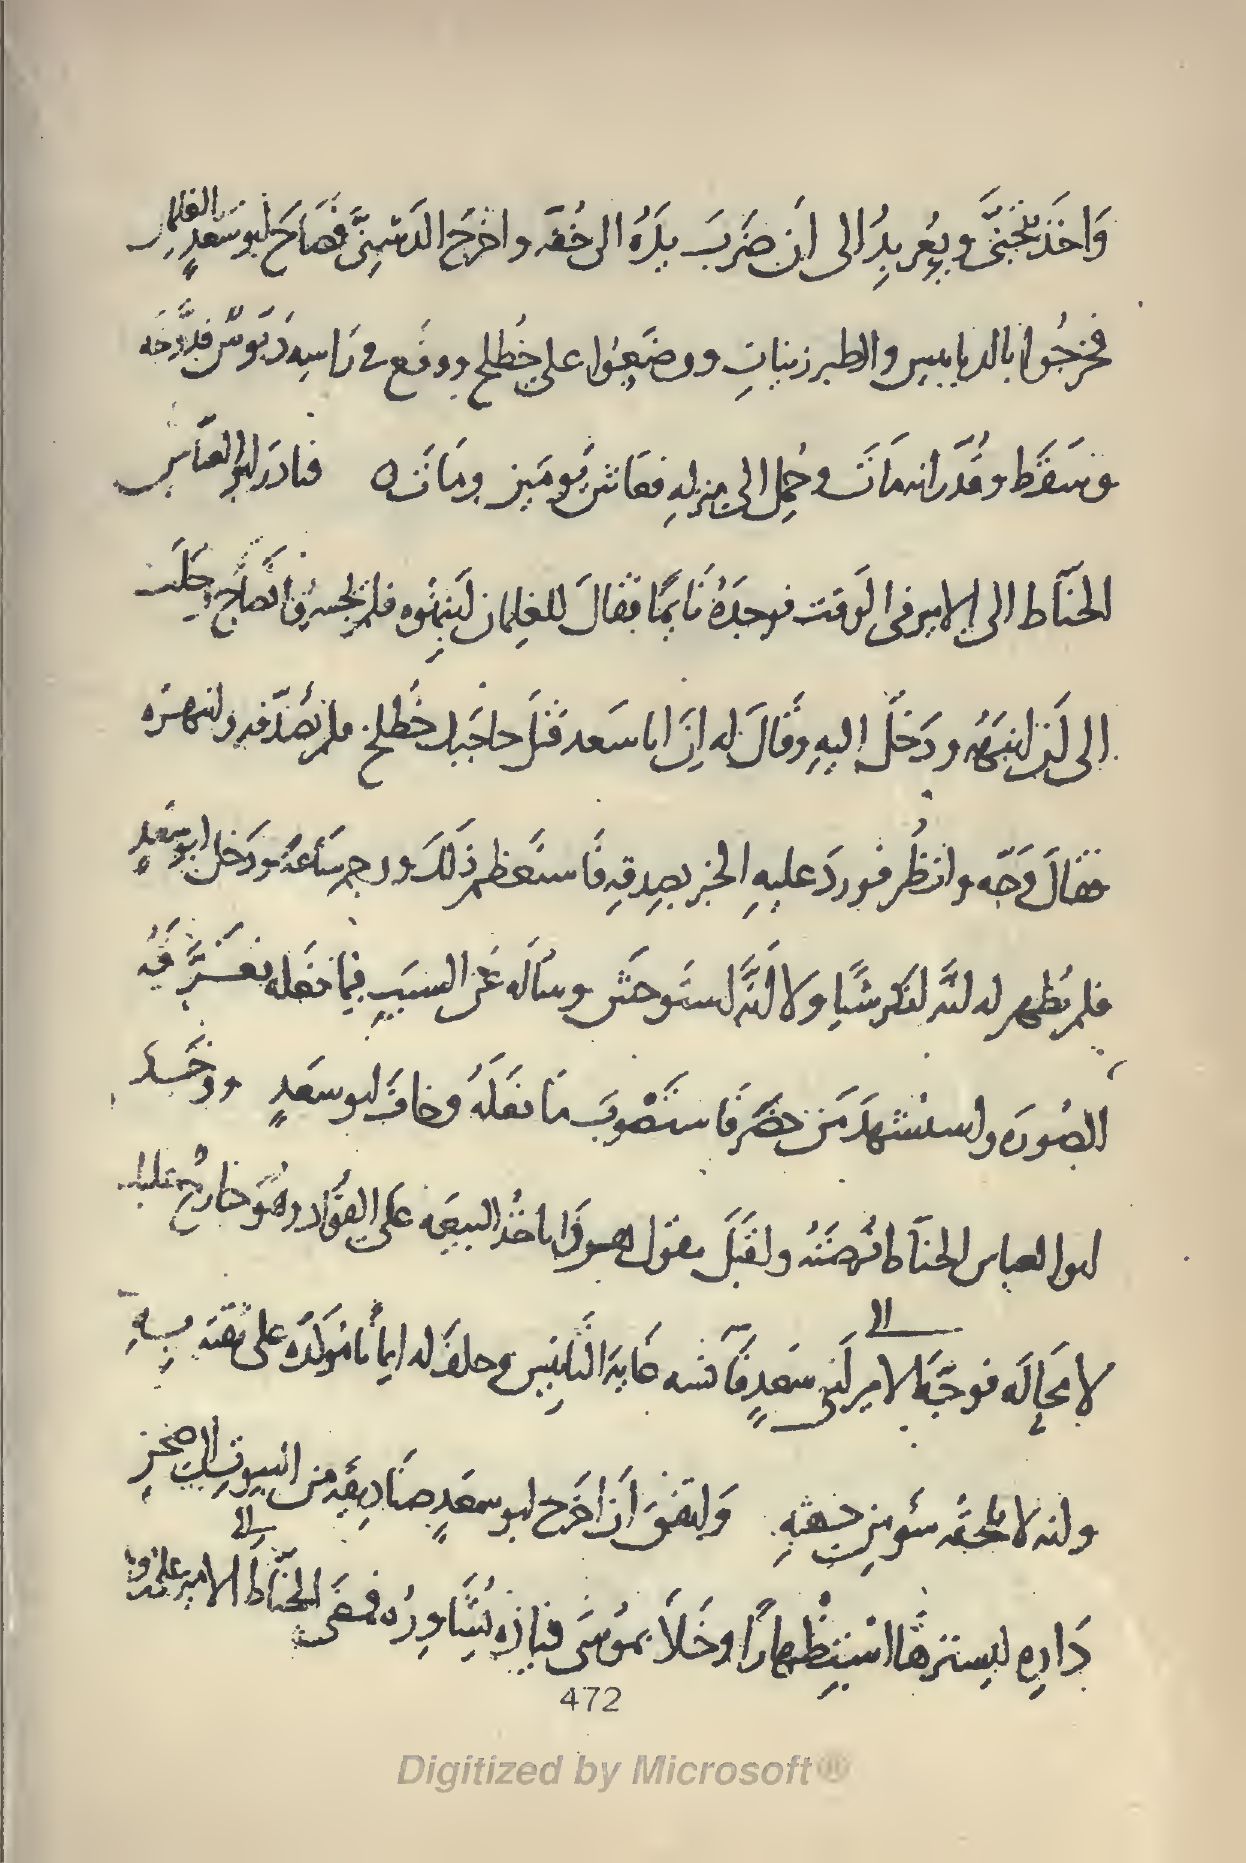 وَاخَذَ يتجَنَّى ويُعربِدُ الى ان ضَرَبَ بيَدَهُ الى خُفّه واخرَجَ الدَشْنِىَّ فصَاحَ ابو سَعدٍ بالغلمان
فخرجُوا بالدبابيس والطبرزينات ووضَعوُا على خُطلخ ووقَع فى رَاسِه دَبّوسٌ فدَوَّخه
وسَقَطَ وقُدّرَ انه مَاتَ وحُمِل الى منزلهِ فعَاش يَومَين ومَاتَ ه فبادَرَ ابو العبَّاس
الحنّاط الى الامير فى الوَقت فوجَدَهُ نَايمًا فقالَ للغِلمان انبِهُوه فلم يجسرُوا فصَاحَ وجَلَّبَ
الى ان انبَهَه ودَخَلَ اليهِ وقَالَ له انَّ ابا سَعد قَتَلَ حاجبَك خُطلخ فلم يُصَدّقه وانتهَرَه
فقالَ وَجّه وانظُر فورَدَ عليهِ الخبر بصِدقِهِ فَاستَعظم ذَلكَ ووجم سَاعَةً ودَخل ابو سَعدٍ
فلم يُظهر له انَّه انكر شَيًا ولا انَّه استَوحَش وسَألَه عَن السبَبِ فيمَا فعَله فعَرَّفَهُ
الصُورَه واستشهَدَ مَن حضَرَ فاستَصْوبَ مَا فعَلَهُ وخافَ ابو سعَدٍ ووَجَد
ابو العباس الحنّاط فُرصَتَه واقبَلَ يقول هو ذَا ياخُذ البيعَه عَلى القُوّاد وهُوَ خارجٌ عليك
لا مَحاله فوجّهَ الامير الى ابى سَعدٍ فآنسَه غَايةَ التانيس وحلفَ له ايمانًا مُوكّدَه على ثقته بهِ
وانه لا يلحقُه سُو من جهتِهِ وَاتفقَ ان اخرَج ابو سعَدٍ صنَاديقَه من البيوت الى صَحن
دَارِه ليسترهَا استِظهارًا وخَلَا بمُوسَى فياذه يُشَاورُه فمضَى الحنّاط الى الامير على
472
Digitized by Microsoft®